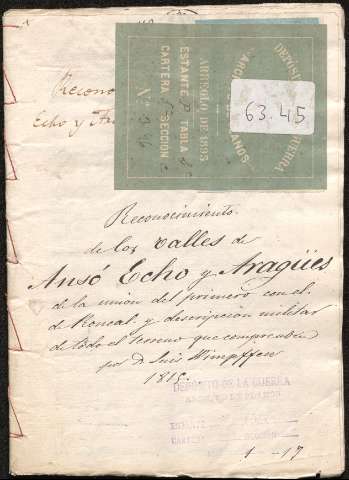 Recono
Echo y Ara
DEPÓSI
ERRA
ARC
ANOS
ARREGLO DE 1895
ESTANTE TABLA
CARTERA SECCION
Nº
63.45
Reconocimiento
de los valles de
Ansó Echo y Aragües
de la union del primero con el
de Roncal y descripcion militar
de todo el terreno que comprenden
por D. Luis Wimpffen
181
DEPÓSITO DE LA GUERRA
ARCHIVO DE PLANOS
ESTANTE
CARTERA
1 - 17